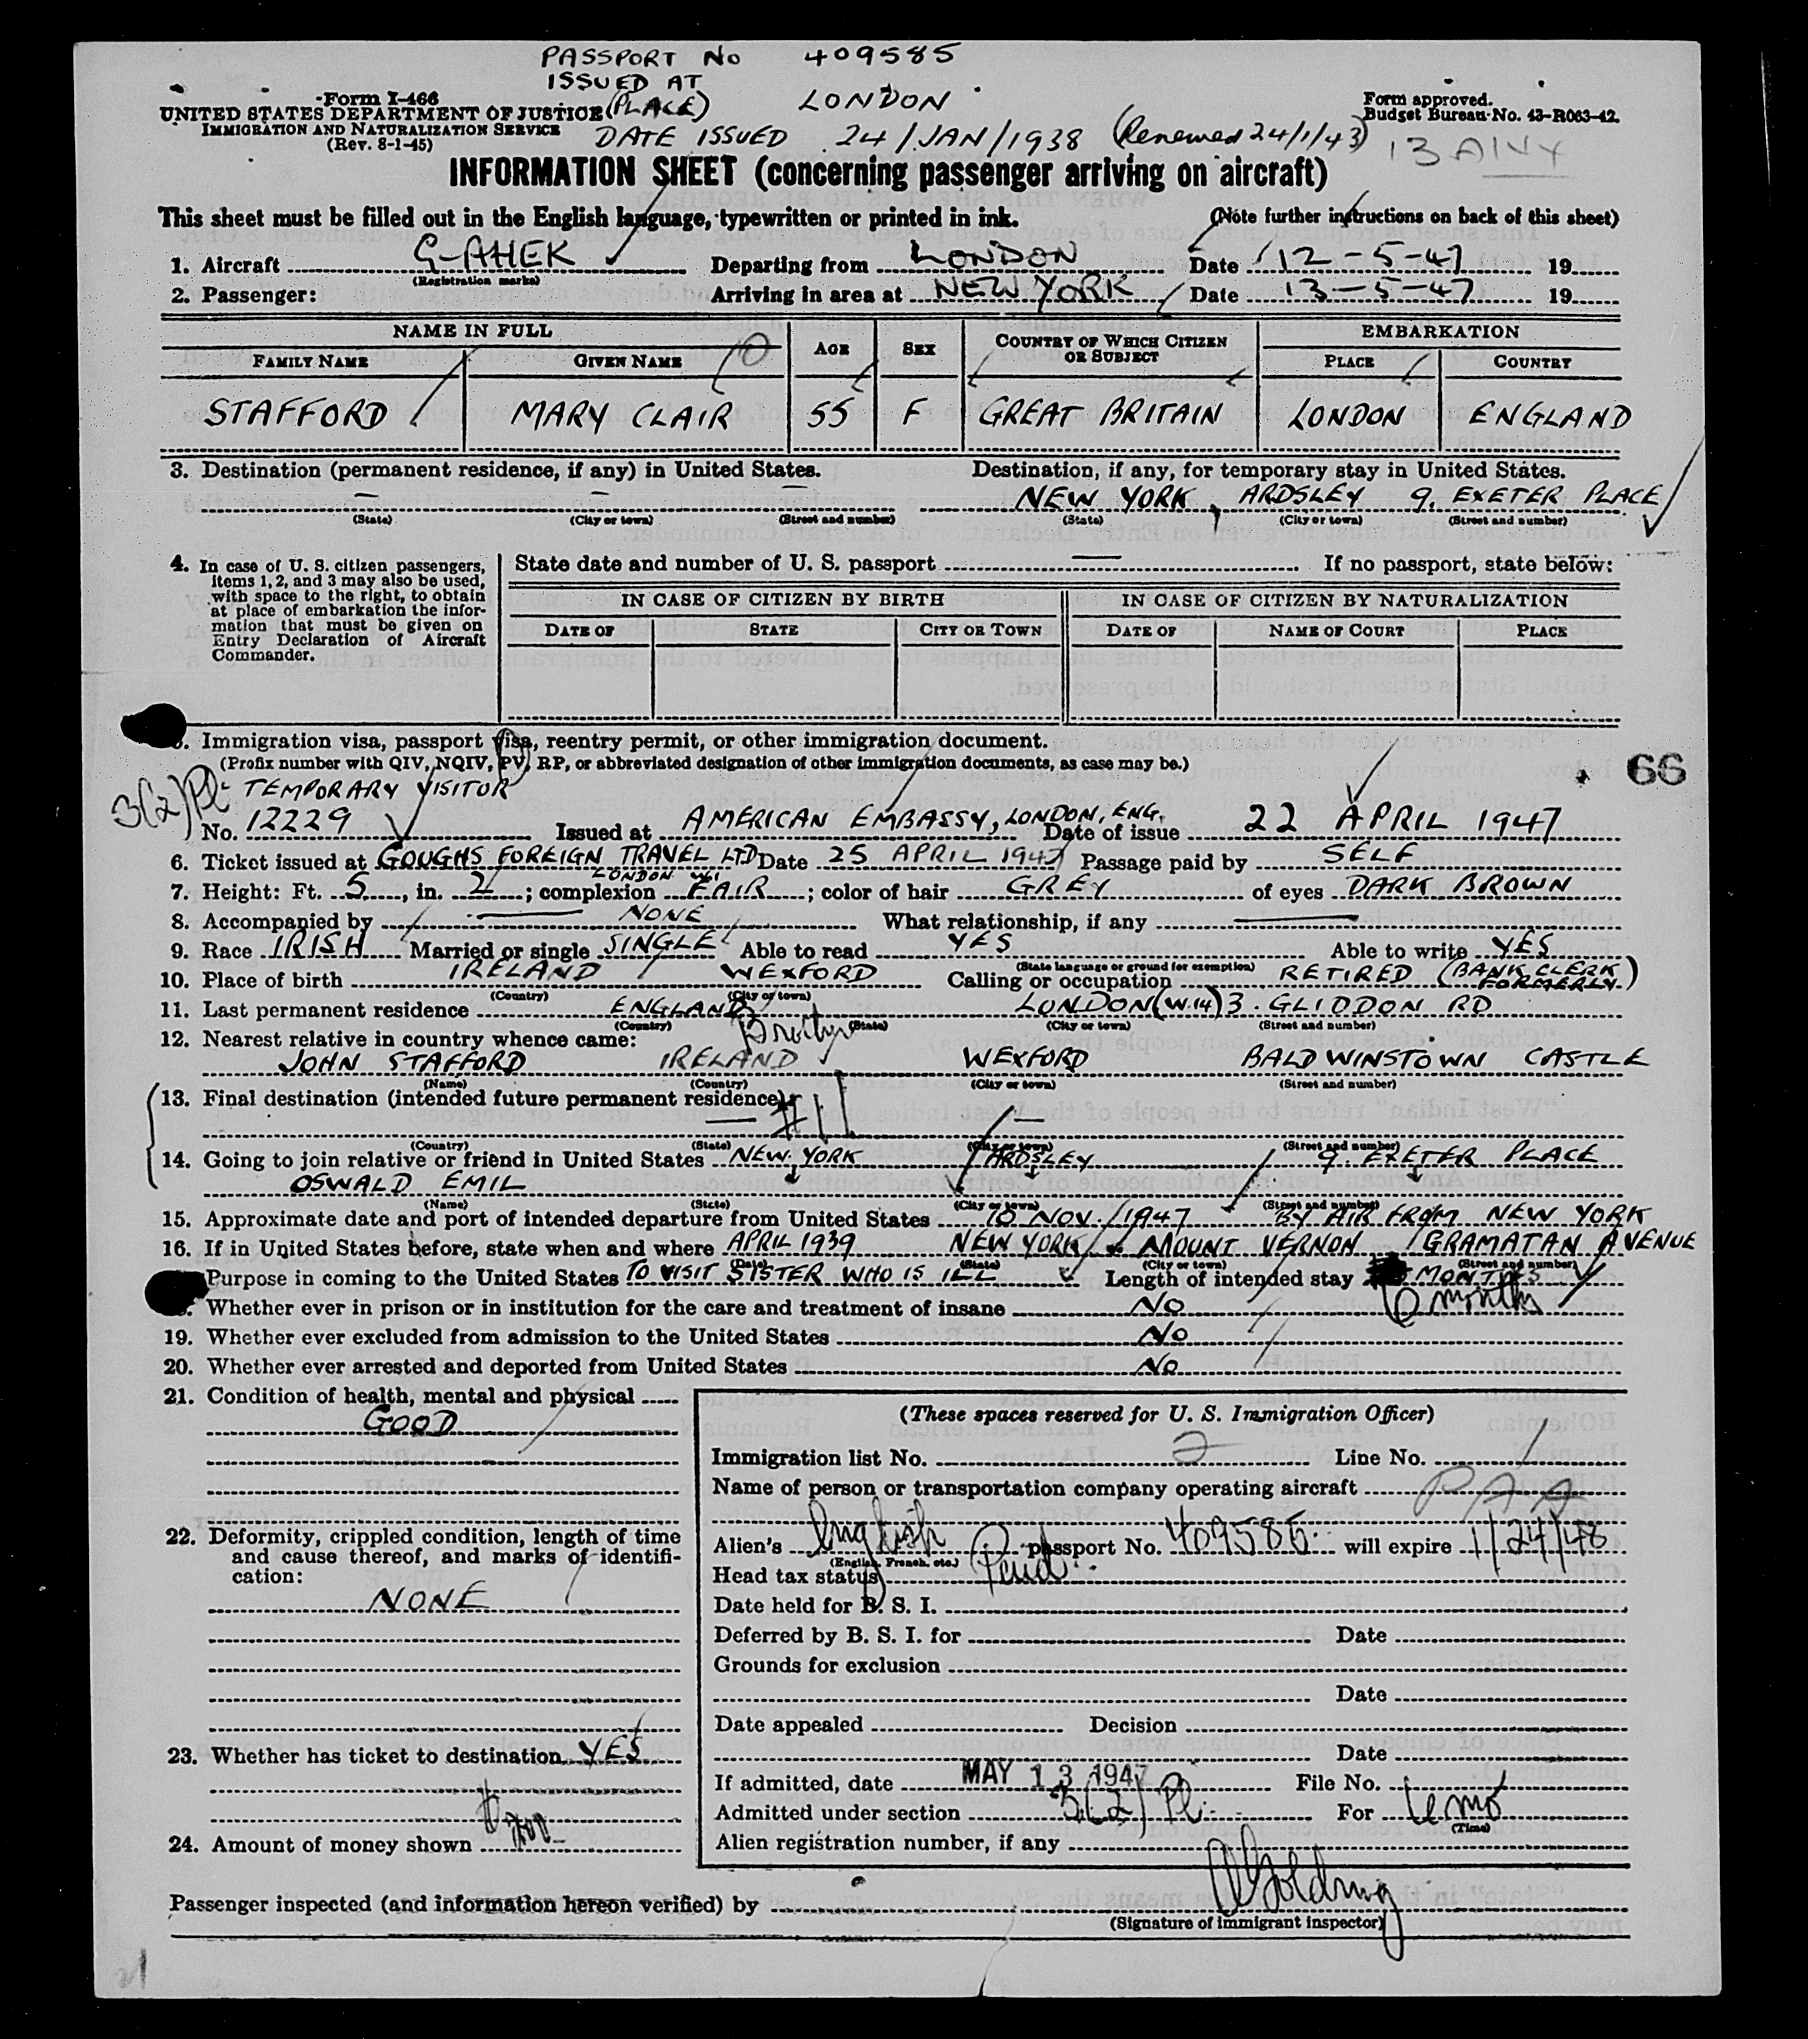 PASSPORT No 409585
ISSUED AT
(PLACE) LONDON
DATE ISSUED 24/JAN/1938 (Renewed 24/1/43)
Form I-466
UNITED STATES DEPARTMENT OF JUSTICE
IMMIGRATION AND NATURALIZATION SERVICE
(Rev. 8-1-45)
Form approved.
Budget Bureau No. 43-R063-42.
INFORMATION SHEET (concerning passenger arriving on aircraft)
This sheet must be filled out in the English language, typewritten or printed in ink. (Note further instructions on back of this sheet)
1. Aircraft G-AHEK Departing from LONDON Date 12-5-47 19
(Registration marks)
2. Passenger: Arriving in area at NEW YORK Date 13-5-47 19
NAME IN FULL AGE SEX COUNTRY OF WHICH CITIZEN OR SUBJECT EMBARKATION
FAMILY NAME GIVEN NAME PLACE COUNTRY
STAFFORD MARY CLAIR 55 F GREAT BRITAIN LONDON ENGLAND
3. Destination (permanent residence, if any) in United States. Destination, if any, for temporary stay in United States.
— — — NEW YORK, ARDSLEY 9. EXETER PLACE
(State) (City or town) (Street and number) (State) (City or town) (Street and number)
4. In case of U. S. citizen passengers,
items 1, 2, and 3 may also be used,
with space to the right, to obtain
at place of embarkation the infor-
mation that must be given on
Entry Declaration of Aircraft
Commander.
State date and number of U. S. passport — If no passport, state below:
IN CASE OF CITIZEN BY BIRTH IN CASE OF CITIZEN BY NATURALIZATION
DATE OF STATE CITY OR TOWN DATE OF NAME OF COURT PLACE
Immigration visa, passport visa, reentry permit, or other immigration document.
(Prefix number with QIV, NQIV, PV, RP, or abbreviated designation of other immigration documents, as case may be.)
66
3(2) Pl TEMPORARY VISITOR
No. 12229 Issued at AMERICAN EMBASSY, LONDON, ENG. Date of issue 22 APRIL 1947
6. Ticket issued at GOUGHS FOREIGN TRAVEL LTD Date 25 APRIL 1947 Passage paid by SELF
LONDON W1
7. Height: Ft. 5, in. 2; complexion FAIR; color of hair GREY of eyes DARK BROWN
8. Accompanied by — NONE What relationship, if any —
9. Race IRISH Married or single SINGLE Able to read YES Able to write YES
(State language or ground for exemption)
10. Place of birth IRELAND WEXFORD Calling or occupation RETIRED (BANK CLERK FORMERLY)
(Country) (City or town)
11. Last permanent residence ENGLAND LONDON (W.14) 3. GLIDDON RD
(Country) (State) (City or town) (Street and number)
12. Nearest relative in country whence came:
JOHN STAFFORD IRELAND WEXFORD BALDWINSTOWN CASTLE
(Name) (Country) (City or town) (Street and number)
13. Final destination (intended future permanent residence)
— #11 —
(Country) (State) (City or town) (Street and number)
14. Going to join relative or friend in United States NEW YORK ARDSLEY 9. EXETER PLACE
OSWALD EMIL
(Name) (State) (City or town) (Street and number)
15. Approximate date and port of intended departure from United States 10 NOV. 1947 BY AIR FROM NEW YORK
16. If in United States before, state when and where APRIL 1939 NEW YORK MOUNT VERNON GRAMATAN AVENUE
(Date) (State) (City or town) (Street and number)
Purpose in coming to the United States TO VISIT SISTER WHO IS ILL Length of intended stay MONTHS
6 months
Whether ever in prison or in institution for the care and treatment of insane NO
19. Whether ever excluded from admission to the United States NO
20. Whether ever arrested and deported from United States NO
21. Condition of health, mental and physical
GOOD
22. Deformity, crippled condition, length of time
and cause thereof, and marks of identifi-
cation:
NONE
23. Whether has ticket to destination YES
24. Amount of money shown
(These spaces reserved for U. S. Immigration Officer)
Immigration list No. 2 Line No. 1
Name of person or transportation company operating aircraft PAA
Alien's English passport No. 409585 will expire 1/24/48
(English, French, etc.)
Head tax status Paid
Date held for B. S. I.
Deferred by B. S. I. for Date
Grounds for exclusion
Date
Date appealed Decision
Date
If admitted, date MAY 13 1947 File No.
Admitted under section 3(2) Pl. For 6 mo
(Time)
Alien registration number, if any
Passenger inspected (and information hereon verified) by
(Signature of immigrant inspector)